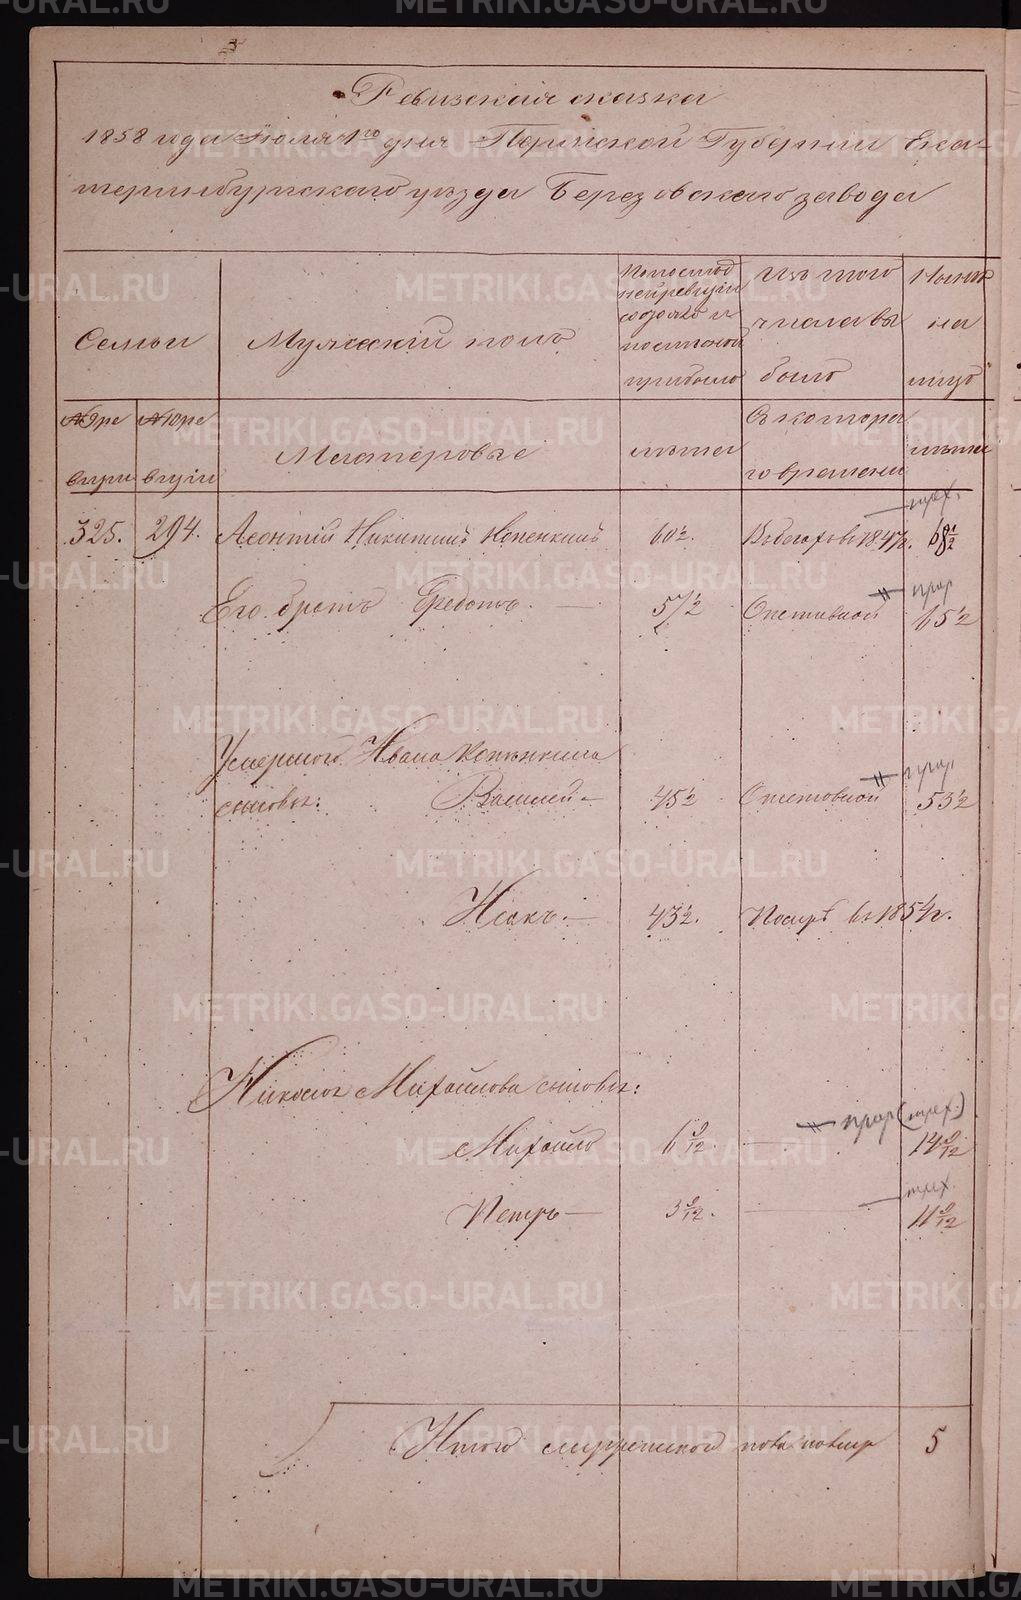 Ревизская сказка
1858 года Июля 1го дня Пермской Губернии Ека-
теринбургского уезда Березовскаго завода
Семьи
Мужеский полъ
По послед
ней ревизіи
состояло и
после того
прибыло
Изъ того
числа вы
было
Ныне
на
лицо
№ 9 ре
визіи
№ 10 ре
визіи
Мастеровые
лета
Съ котора
го времени
лета
325.
294.
Леонтій Никитинъ Копенкинъ
60 1/2
В бегах съ 1847 г.
68 1/2
трех.
Его братъ Федотъ. —
57 1/2
Отставной
прав
65 1/2
Умершаго Ивана Копенкина
сыновья: Василей —
45 1/2
Отставной
прав
53 1/2
Исакъ. —
43 1/2.
Помръ въ 1854 г.
Николая Михайлова сыновья:
Михайло
6 9/12
—
прав (трех.)
14 9/12
Петръ —
3 9/12.
—
трех.
11 9/12
Итого мужескаго пола налицо
5
METRIKI.GASO-URAL.RU